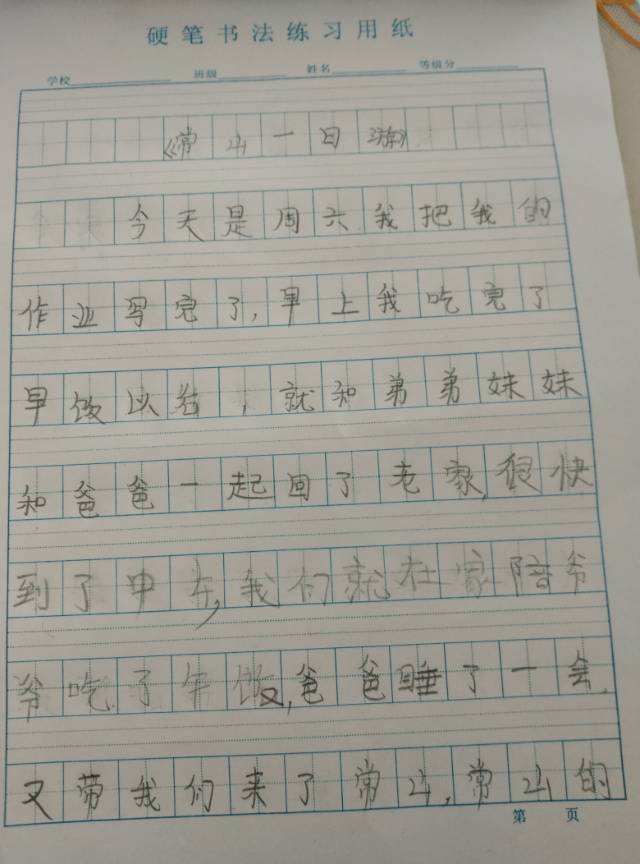 硬笔书法练习用纸
学校 班级 姓名 等级分
《常山一日游》
今天是周六我把我的
作业写完了,早上我吃完了
早饭以后,就和弟弟妹妹
和爸爸一起回了老家,很快
到了中午,我们就在家陪爷
爷吃了午饭,爸爸睡了一会,
又带我们来了常山,常山的
第 页